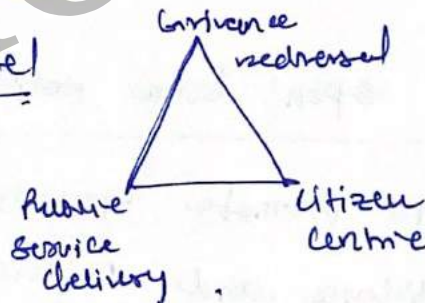 Grivance
redressal
Public
service
delivery
Citizen
centric